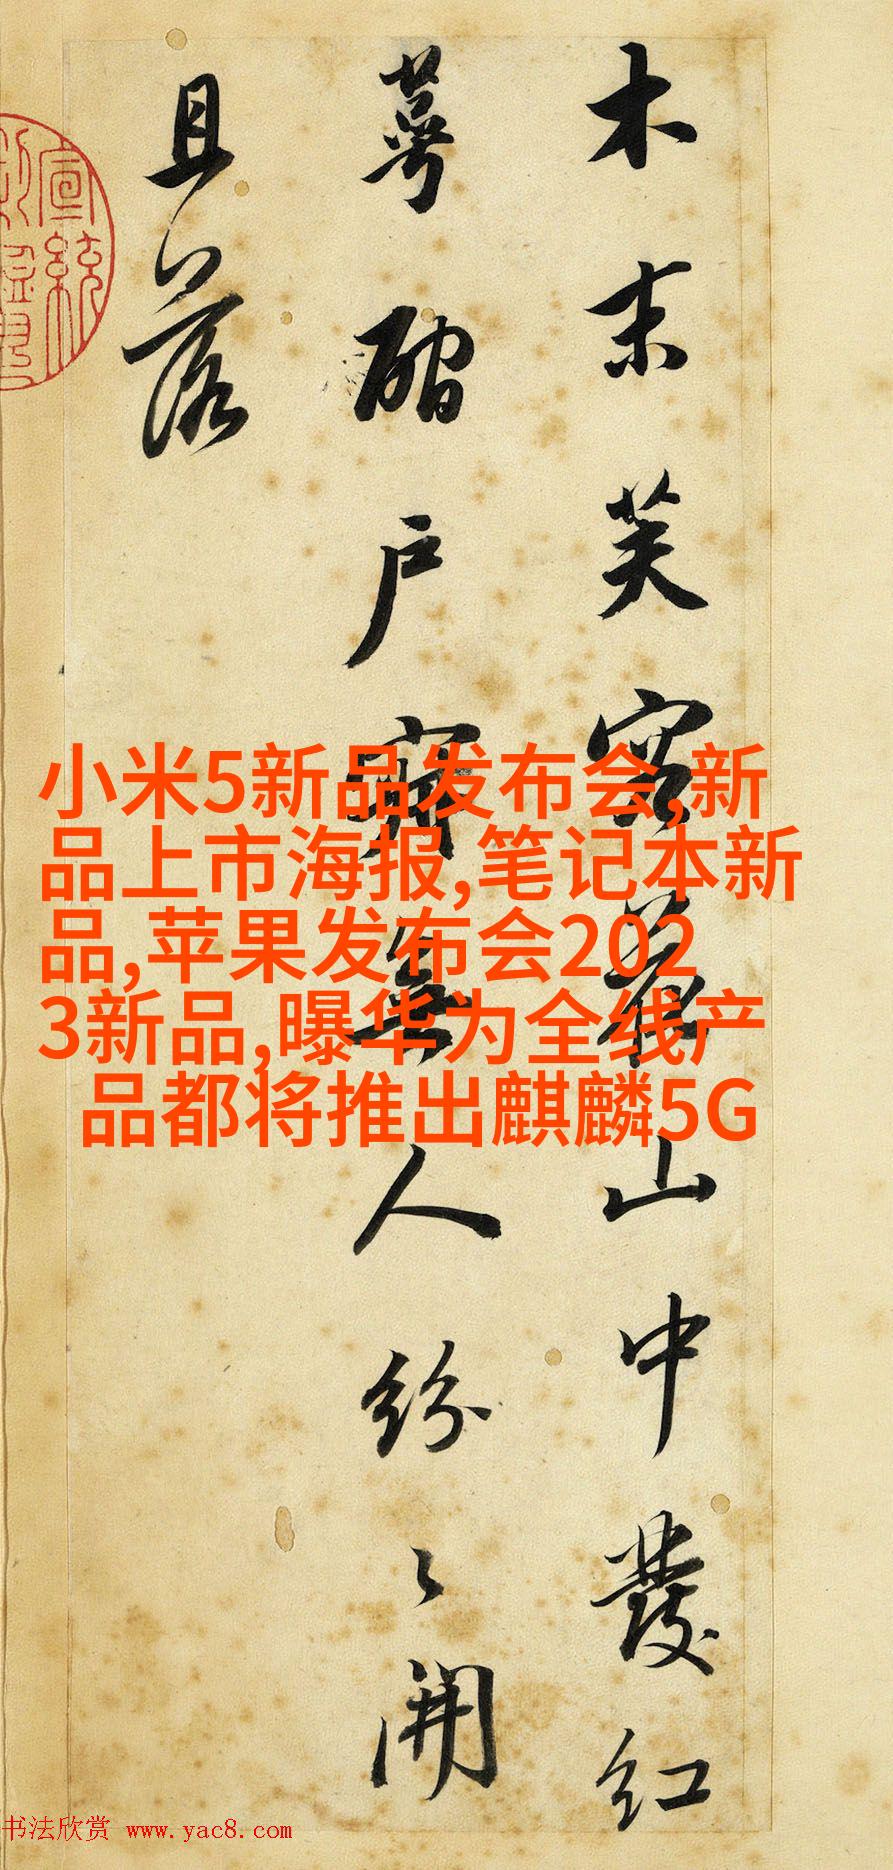 木末芙容花山中發紅
萼磵戶寂無人紛々開
且落
宣統
小米5新品发布会,新
品上市海报,笔记本新
品,苹果发布会202
3新品,曝华为全线产
品都将推出麒麟5G
书法欣赏 www.yac8.com